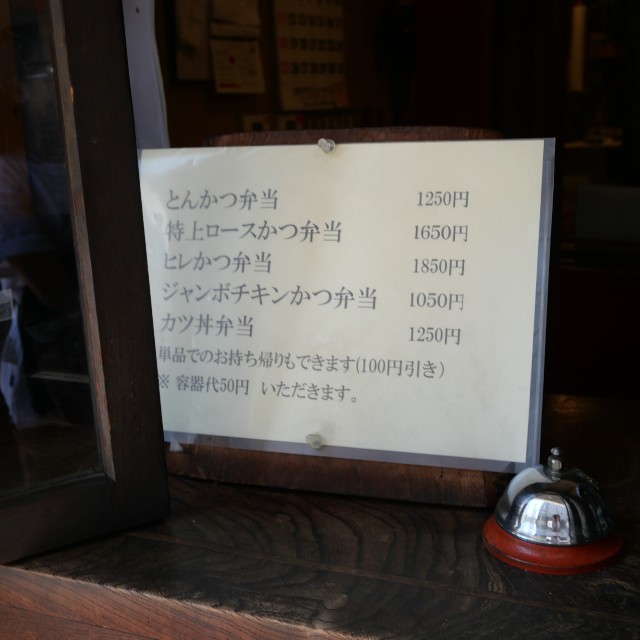 とんかつ弁当 1250円
特上ロースかつ弁当 1650円
ヒレかつ弁当 1850円
ジャンボチキンかつ弁当 1050円
カツ丼弁当 1250円
単品でのお持ち帰りもできます(100円引き)
※ 容器代50円 いただきます。